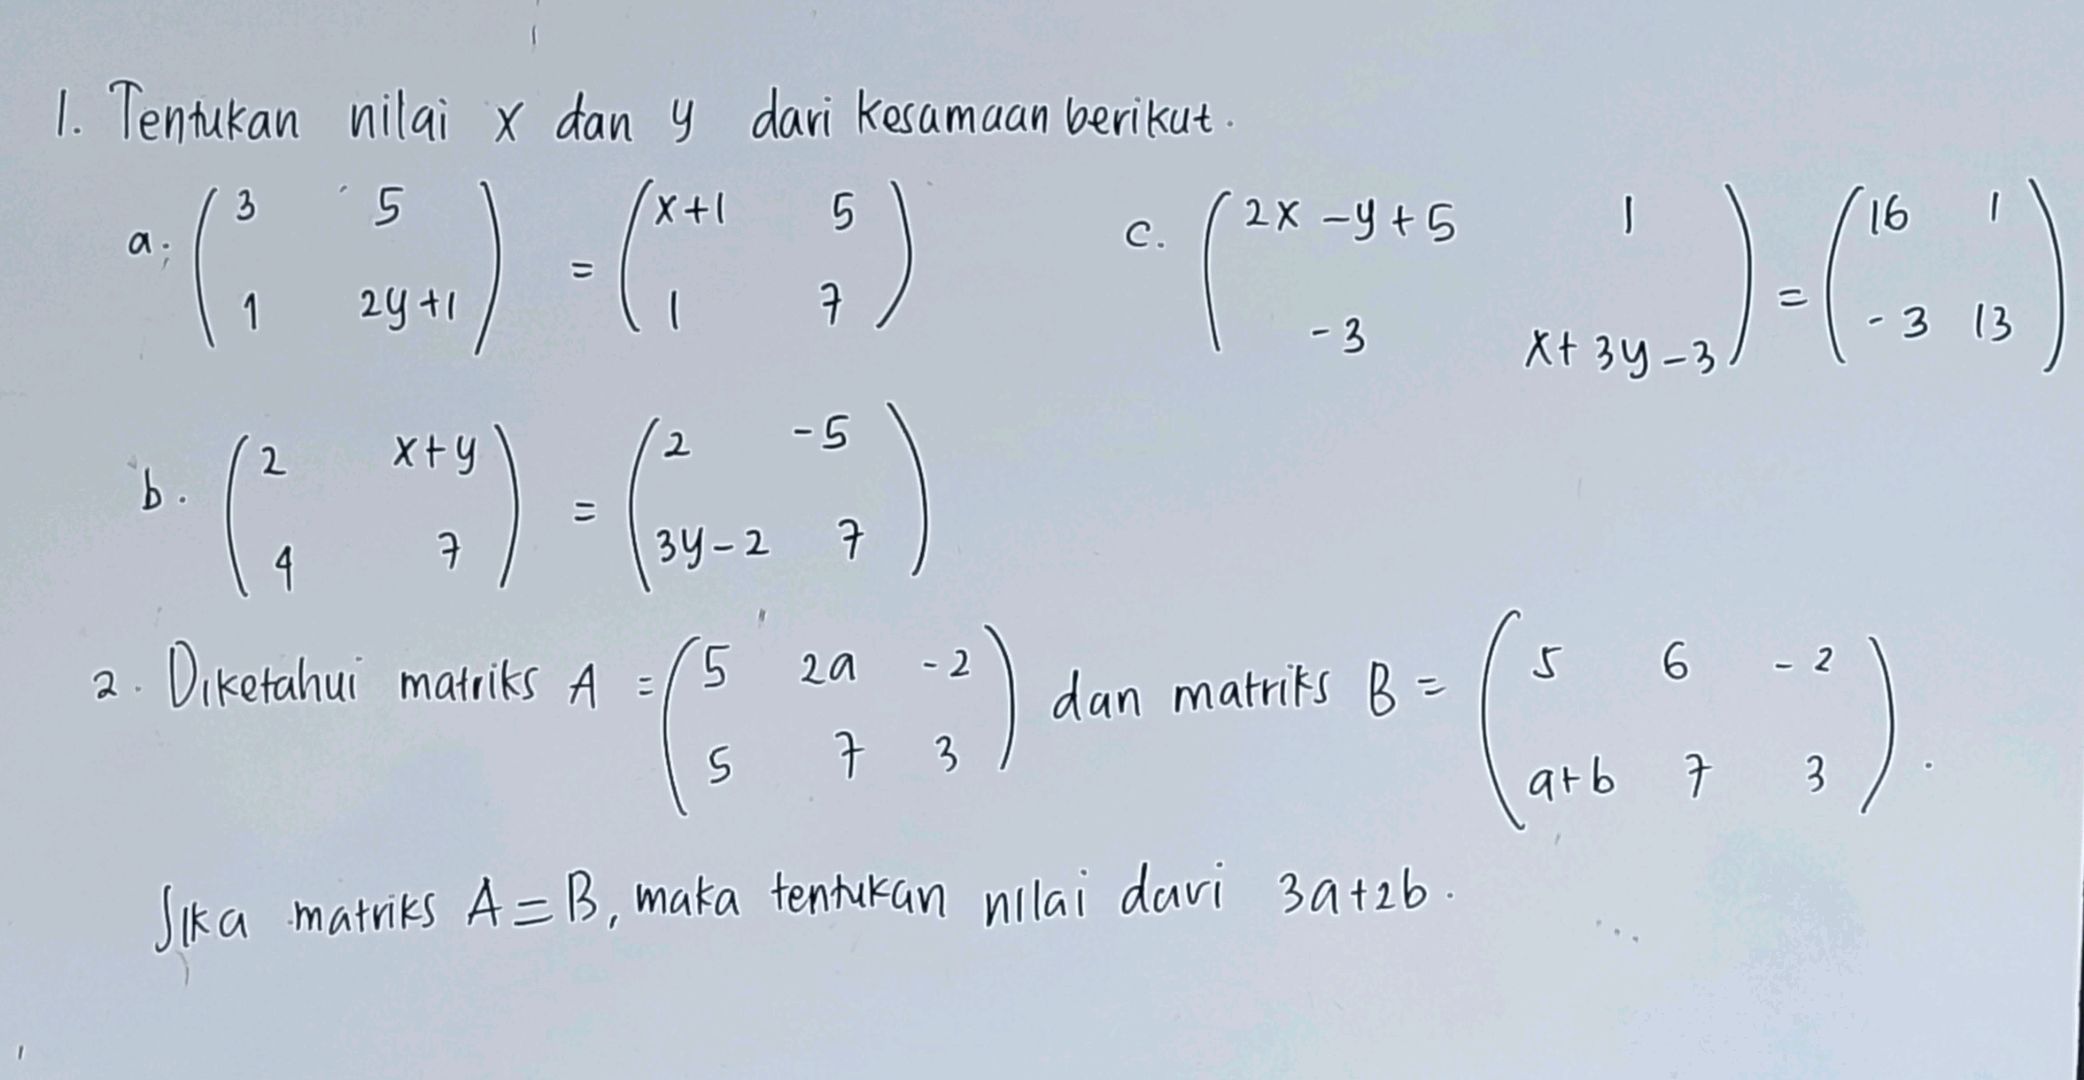 1. Tentukan nilai x dan y dari kesamaan berikut.
a. ( 3 5 ) = ( x+1 5 )
( 1 2y+1 ) ( 1 7 )
c. ( 2x -y+5 1 ) = ( 16 1 )
( -3 x+3y-3 ) ( -3 13 )
b. ( 2 x+y ) = ( 2 -5 )
( 4 7 ) ( 3y-2 7 )
2. Diketahui matriks A = ( 5 2a -2 ) dan matriks B = ( 5 6 -2 ).
( 5 7 3 ) ( a+b 7 3 )
Jika matriks A=B, maka tentukan nilai dari 3a+2b.